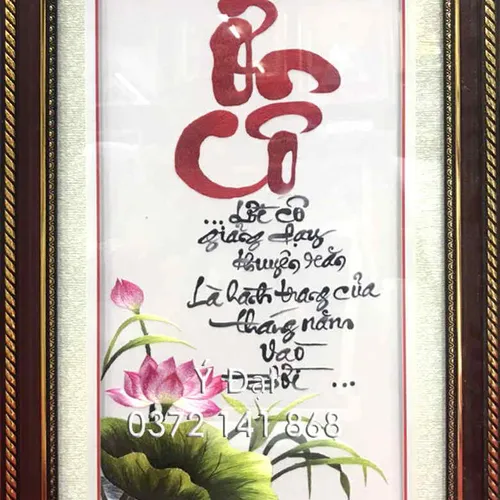 Ơn
Cô
... Lời cô
giảng dạy
khuyên răn
Là hành trang của
tháng năm
vào
đời ...
Ý Đạt
0372 141 868